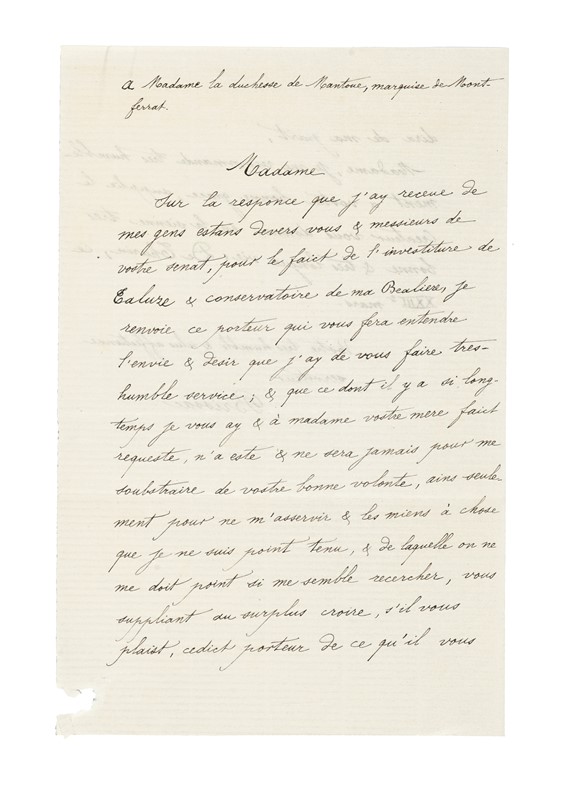 A Madame la duchesse de Mantoue, marquise de Mont-
ferrat.
Madame
Sur la responce que j'ay receue de
mes gens estans devers vous & messieurs de
vostre senat, pour le faict de l'investiture de
Saluze & conservatoire de ma Realiere, je
renvoie ce porteur qui vous fera entendre
l'envie & desir que j'ay de vous faire tres-
humble service; & que ce dont il y a si long-
temps je vous ay & à madame vostre mere faict
requeste, n'a esté & ne sera jamais pour me
soubstraire de vostre bonne volonte, ains seule-
ment pour ne m'asservir & les miens à chose
que je ne suis point tenu, & de laquelle on ne
me doit point si me semble recercher, vous
suppliant au surplus croire, s'il vous
plaist, cedict porteur de ce qu'il vous